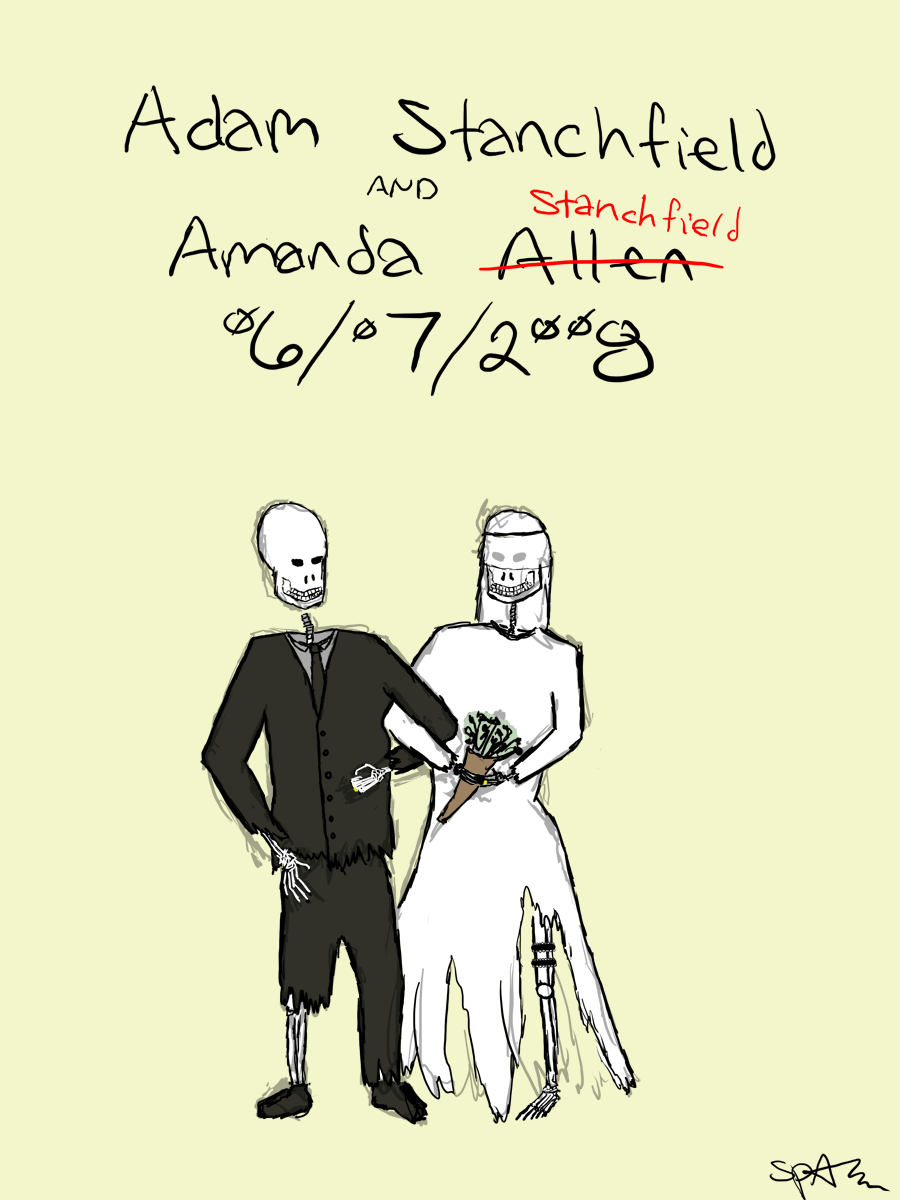 Adam Stanchfield
AND
Stanchfield
Amanda Allen
06/07/2008